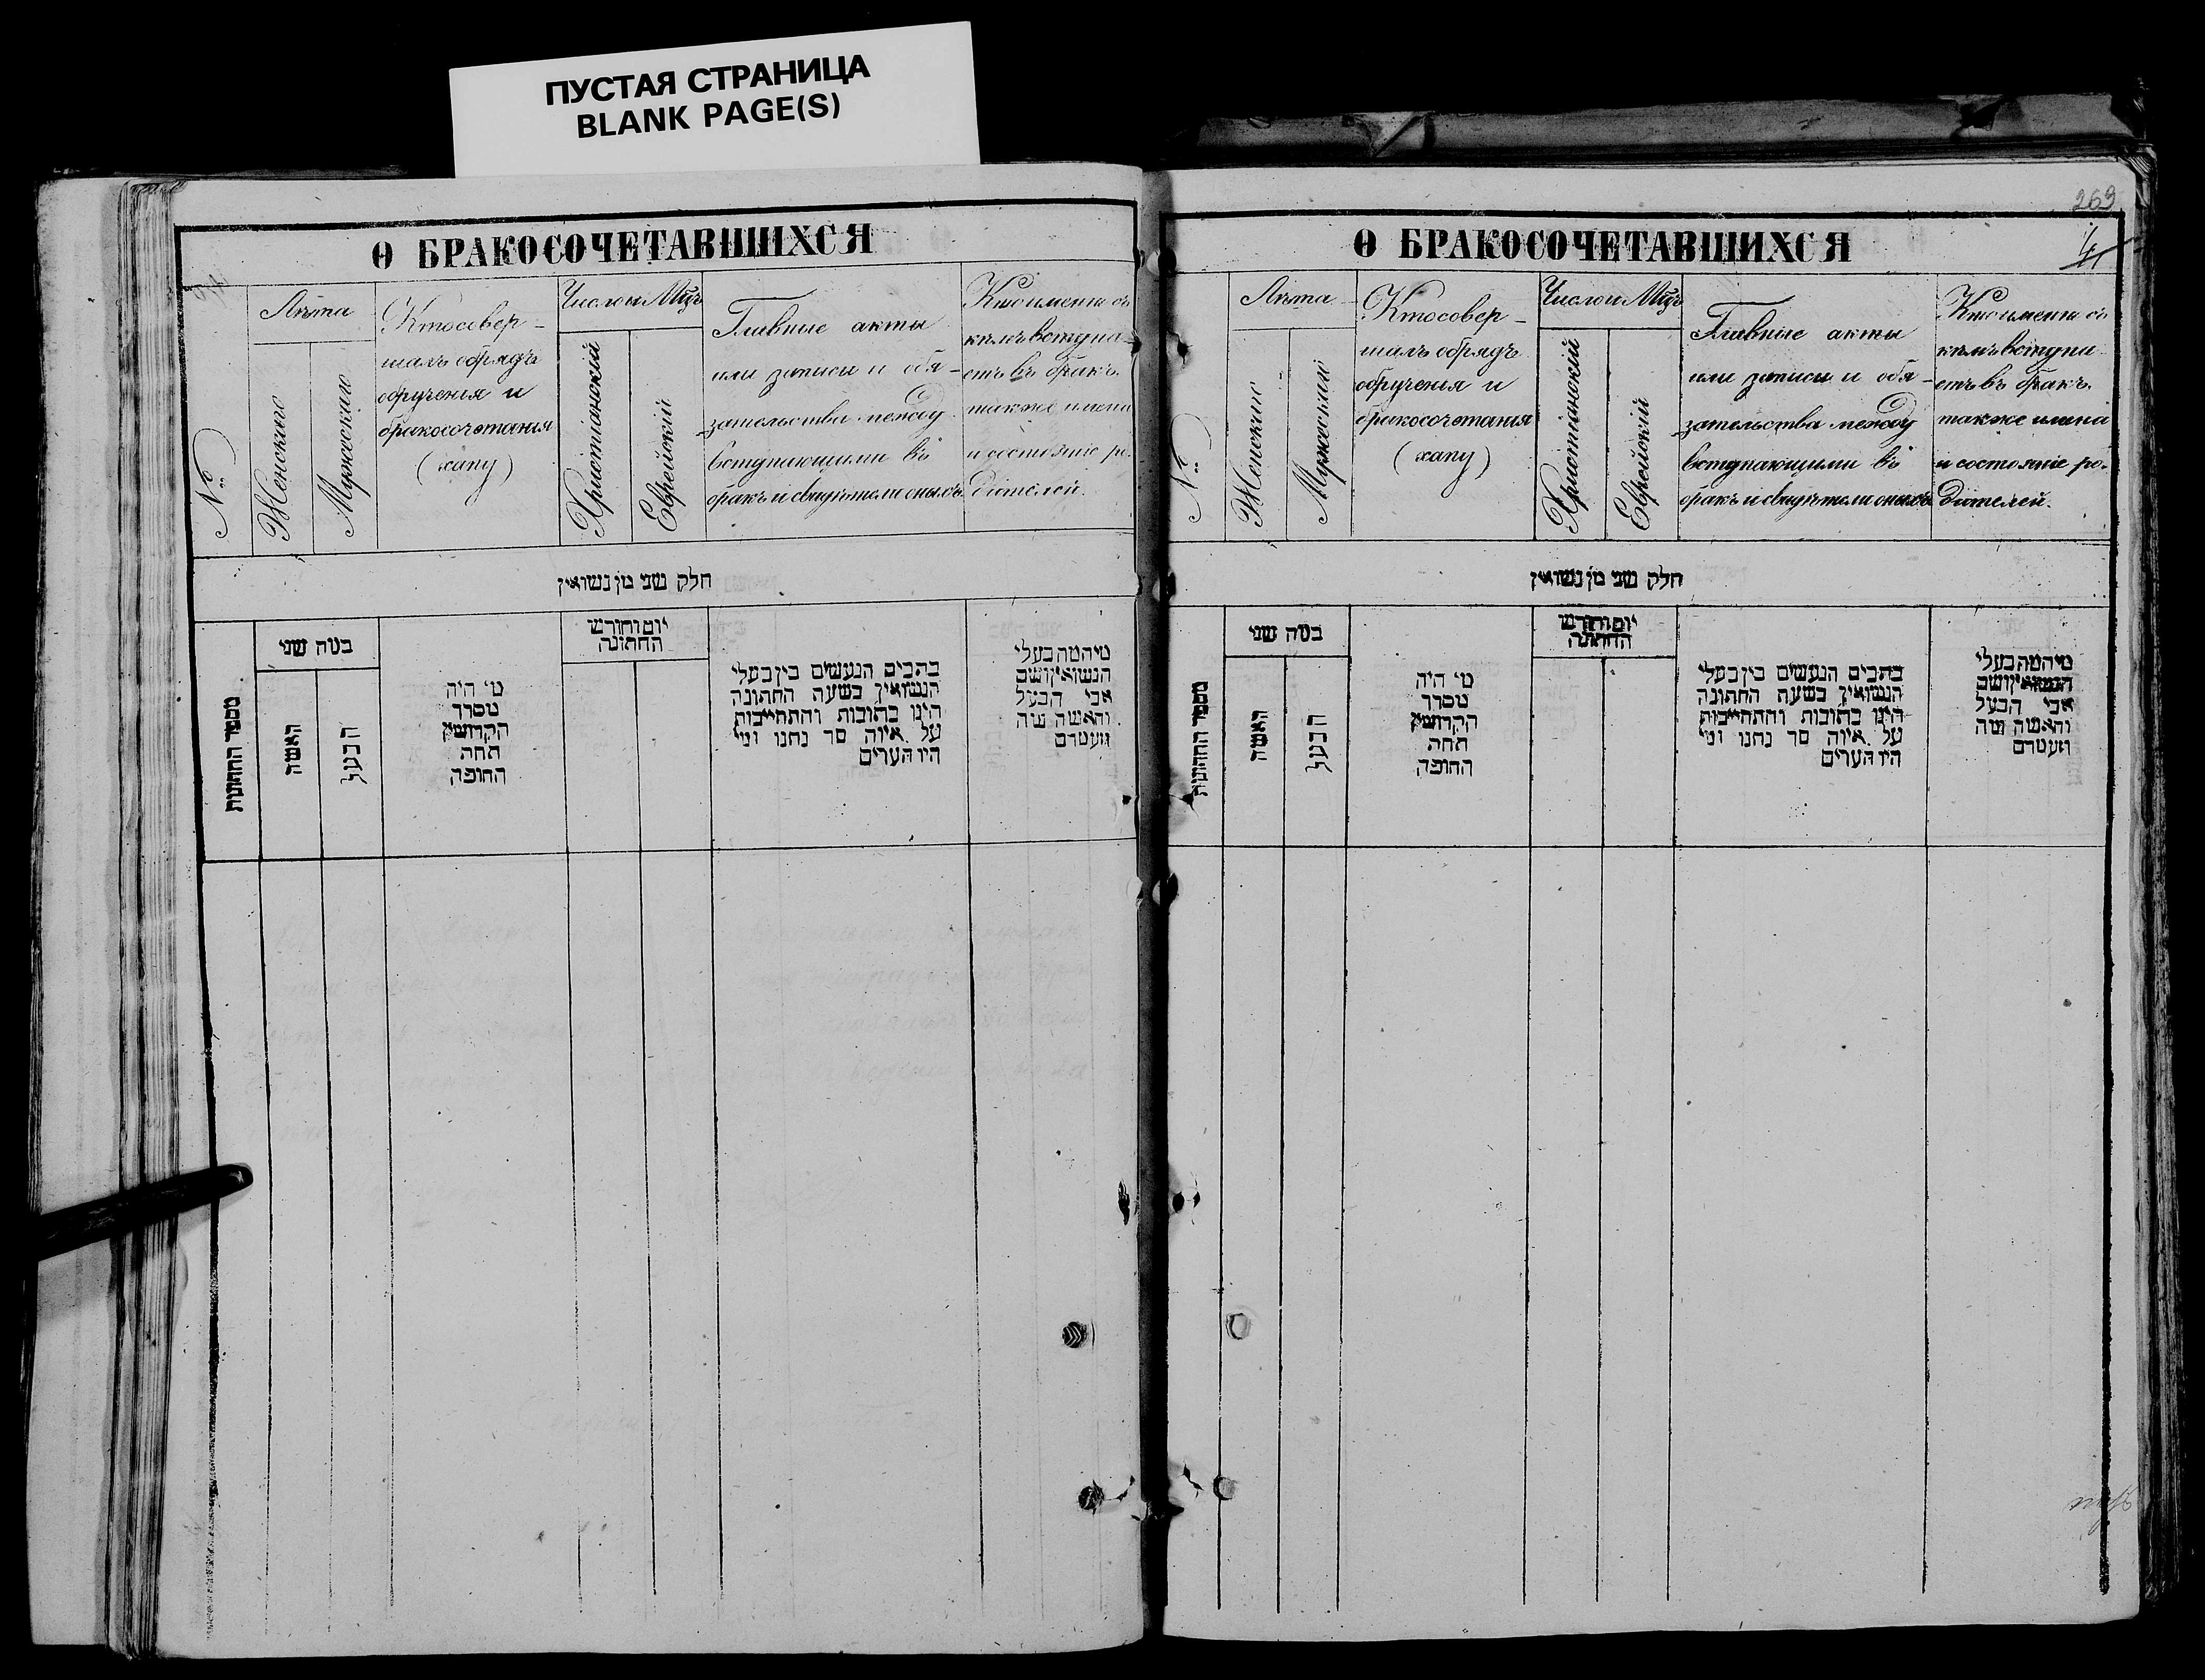 ПУСТАЯ СТРАНИЦА
BLANK PAGE(S)
О БРАКОСОЧЕТАВШИХСЯ
№
Лѣта
Женскаго
Мужескаго
Кто совер-
шалъ обрядъ
обрученія и
бракосочетанія
(хапу)
Число и Мцъ
Христіанскій
Еврейскій
Главные акты
или записи и обя-
зательства между
вступающими въ
бракъ и свидѣтели оныхъ
Кто именно съ
кѣмъ вступа-
етъ въ бракъ.
также имена
и состояніе ро-
дителей.
חלק שני מן נשואין
מספר החתונות
כמה שני
האשה
הבעל
מי היה
מסדר
הקדושין
תחת
החופה
יום וחודש
החתונה
כתבים הנעשים בין בעלי
הנשואין בשעה החתונה
היינו כתובות והתחייבות
על איזה סך נתנו ומי
היו העדים
מי המה בעלי
הנשואין ושם
אבי הבעל
והאשה ומה
מעמדם
269
4
О БРАКОСОЧЕТАВШИХСЯ
№
Лѣта
Женскаго
Мужескаго
Кто совер-
шалъ обрядъ
обрученія и
бракосочетанія
(хапу)
Число и Мцъ
Христіанскій
Еврейскій
Главные акты
или записи и обя-
зательства между
вступающими въ
бракъ и свидѣтели оныхъ
Кто именно съ
кѣмъ вступа-
етъ въ бракъ.
также имена
и состояніе ро-
дителей.
חלק שני מן נשואין
מספר החתונות
כמה שני
האשה
הבעל
מי היה
מסדר
הקדושין
תחת
החופה
יום וחודש
החתונה
כתבים הנעשים בין בעלי
הנשואין בשעה החתונה
היינו כתובות והתחייבות
על איזה סך נתנו ומי
היו העדים
מי המה בעלי
הנשואין ושם
אבי הבעל
והאשה ומה
מעמדם